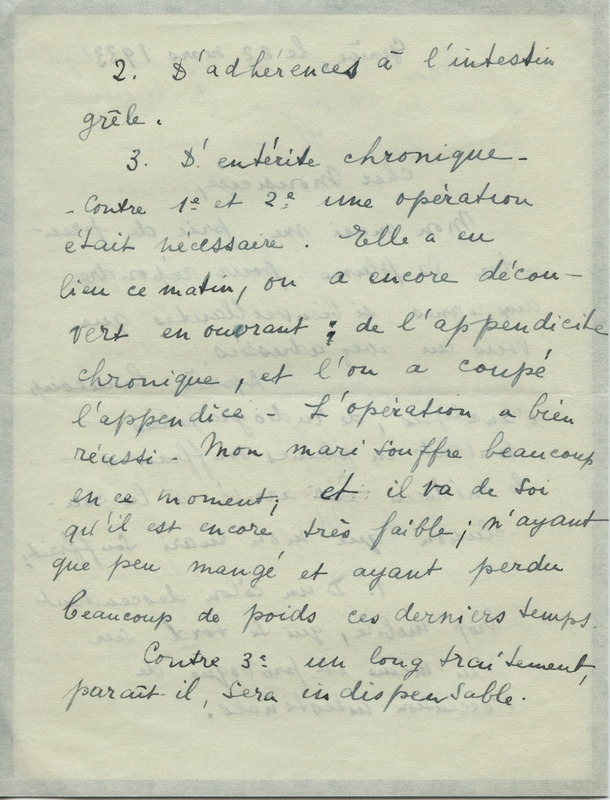 2. D'adhérences à l'intestin
grêle.
3. D'entérite chronique -
- Contre 1e et 2e une opération
était nécessaire. Elle a eu
lieu ce matin, on a encore décou-
vert en ouvrant : de l'appendicite
chronique, et l'on a coupé
l'appendice - L'opération a bien
réussi - Mon mari souffre beaucoup
en ce moment, et il va de soi
qu'il est encore très faible; n'ayant
que peu mangé et ayant perdu
beaucoup de poids ces derniers temps.
Contre 3e un long traitement,
paraît-il, sera indispensable.